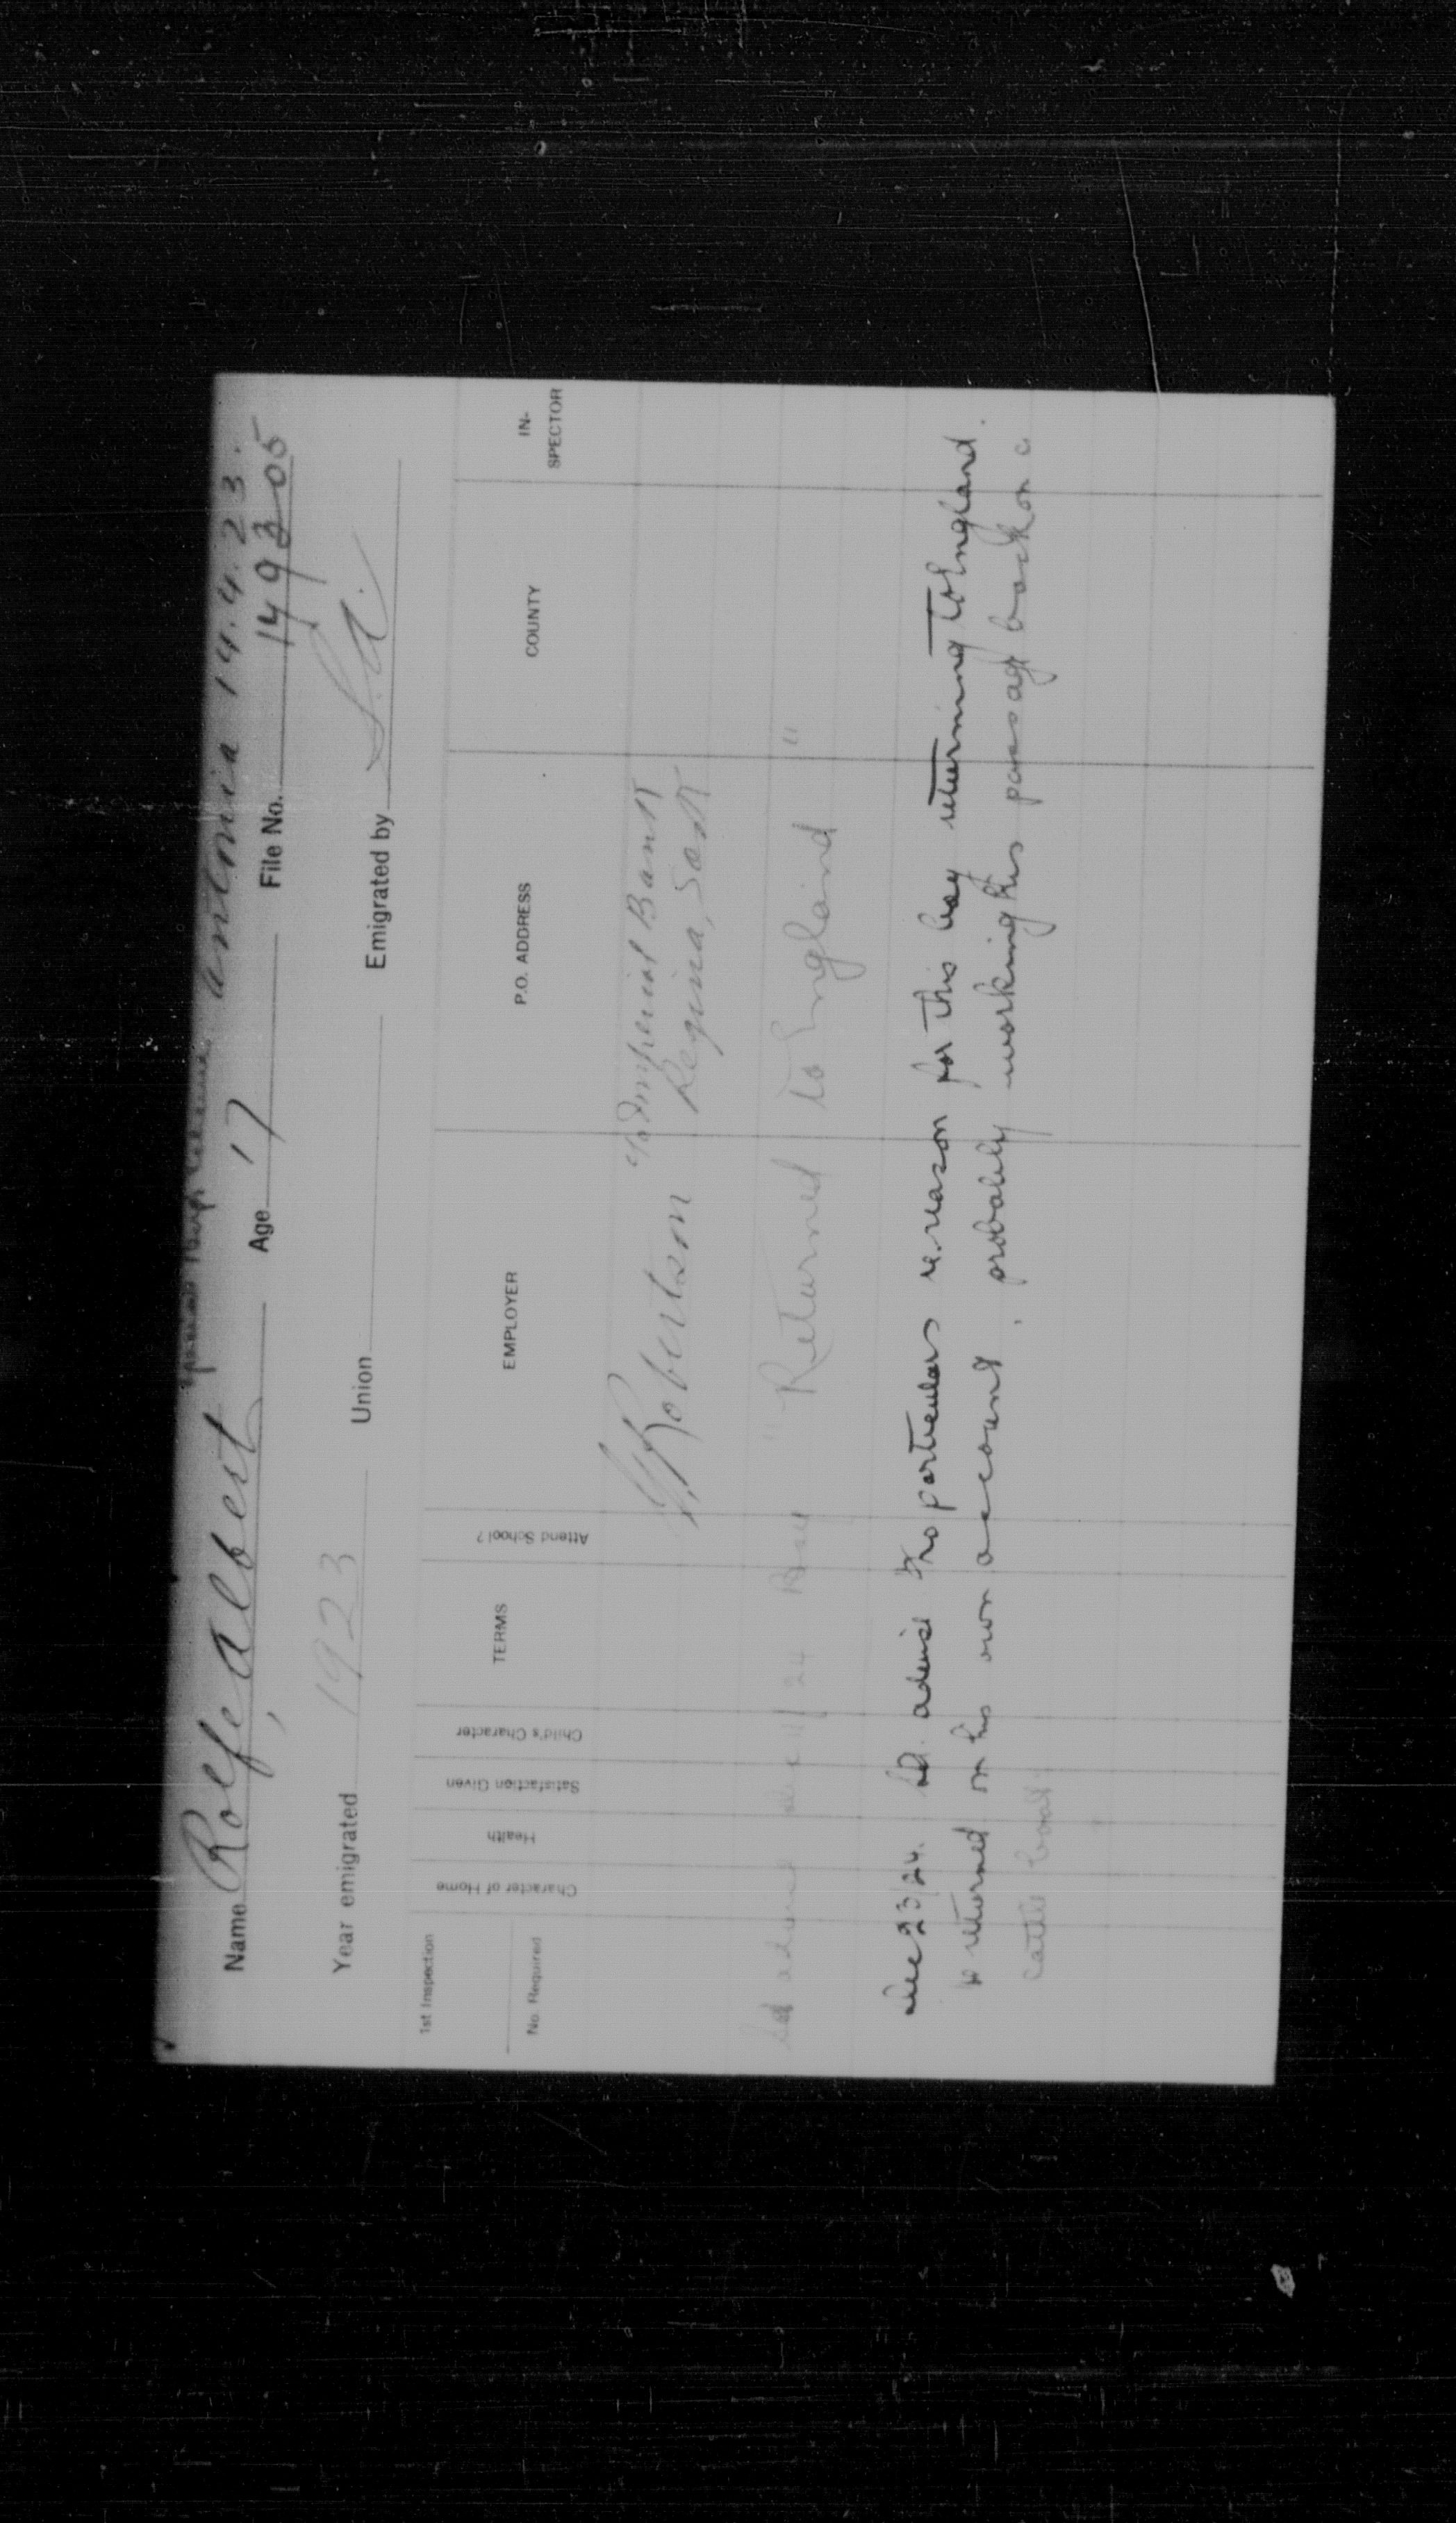 Antonia 14.4.23.
Name Rolfe, Albert Age 17 File No. 149305
Year emigrated 1923 Union Emigrated by S.A.
1st Inspection
No. Required
Character of Home
Health
Satisfaction Given
Child's Character
TERMS
Attend School?
EMPLOYER
P.O. ADDRESS
COUNTY
IN-
SPECTOR
J. Robertson c/o Imperial Bank
Regina, Sask
SA advise Dec 11/24 Boy "Returned to England"
Dec 23/24. SA. advise "no particulars re reason for this boy returning to England.
returned on his own account, probably working his passage back on a
cattle boat."